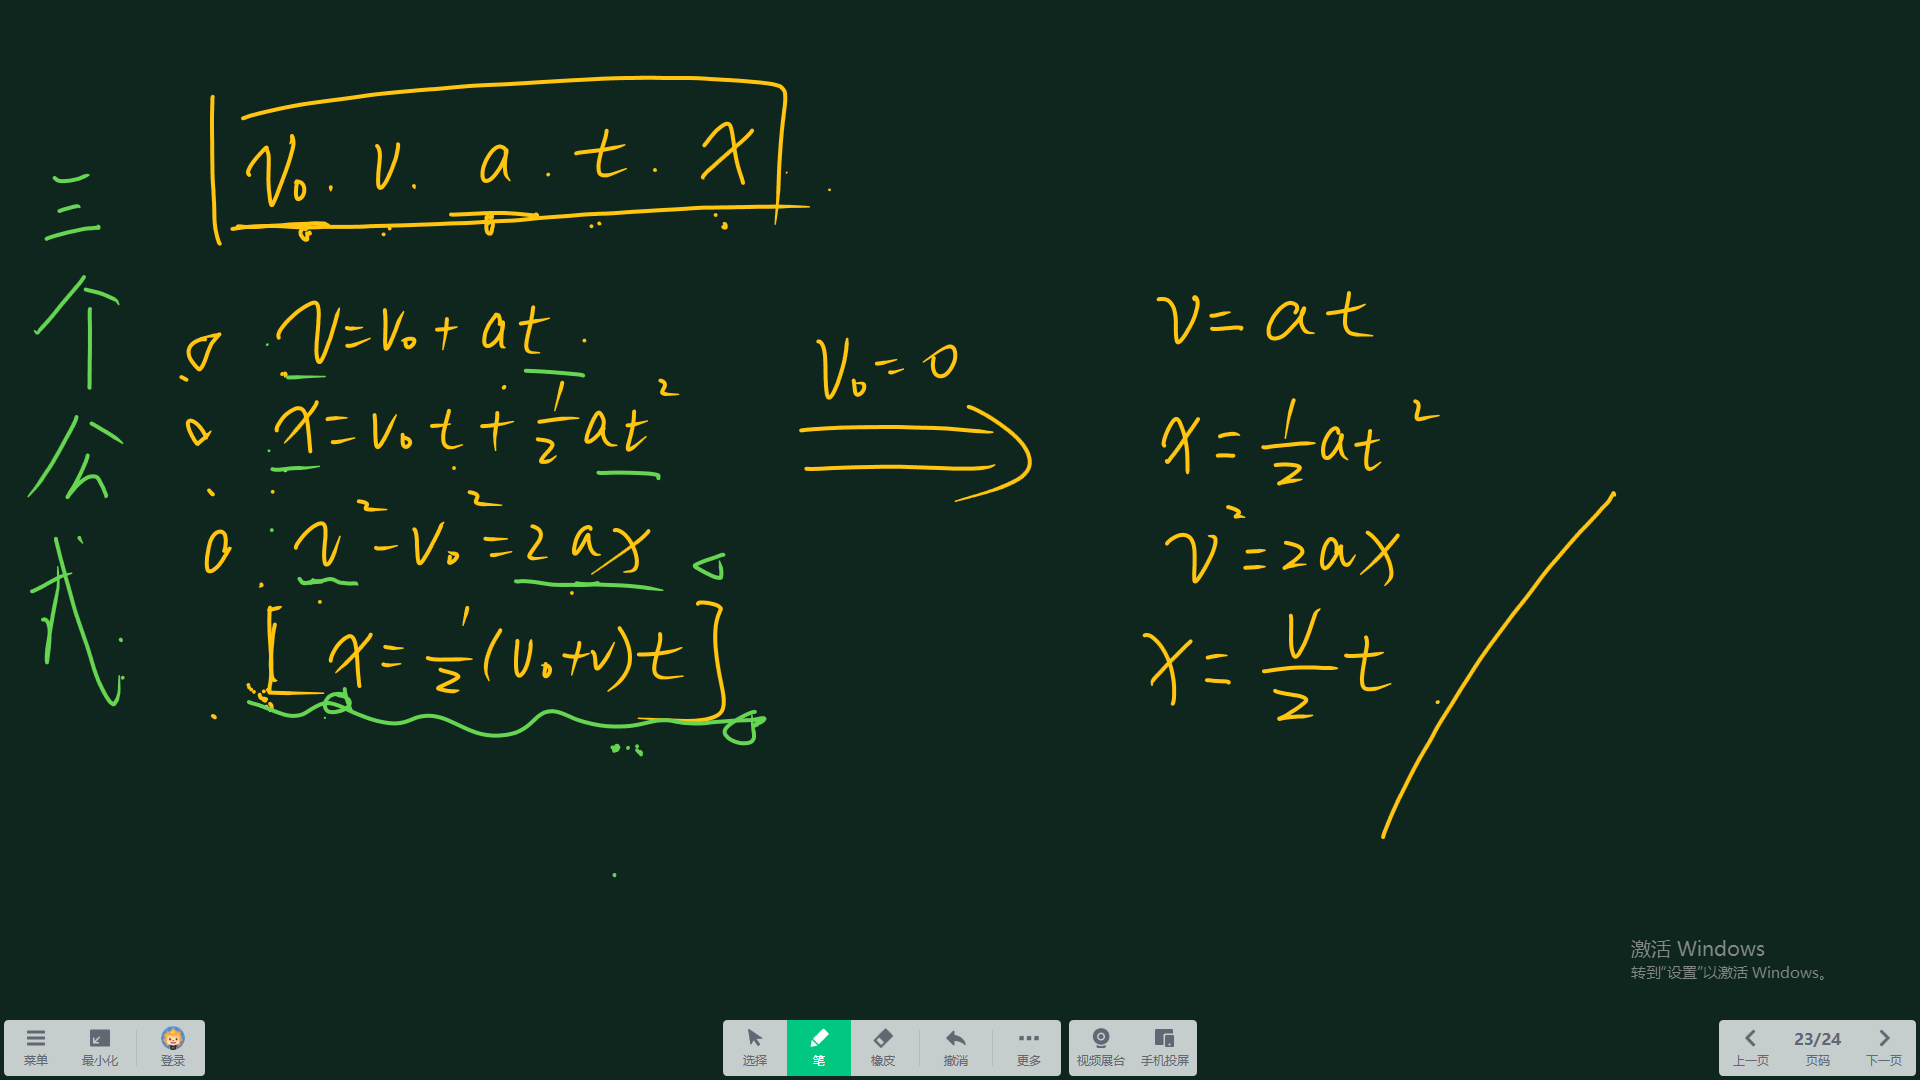 v₀. v. a. t. x
三个公式
v=v₀+at.
x=v₀t+½at²
v²-v₀²=2ax
[x=½(v₀+v)t]
v₀=0
v=at
x=½at²
v²=2ax
x=v/2 t
激活 Windows
转到“设置”以激活 Windows。
菜单 最小化 登录 选择 笔 橡皮 撤消 更多 视频展台 手机投屏 上一页 23/24 页码 下一页